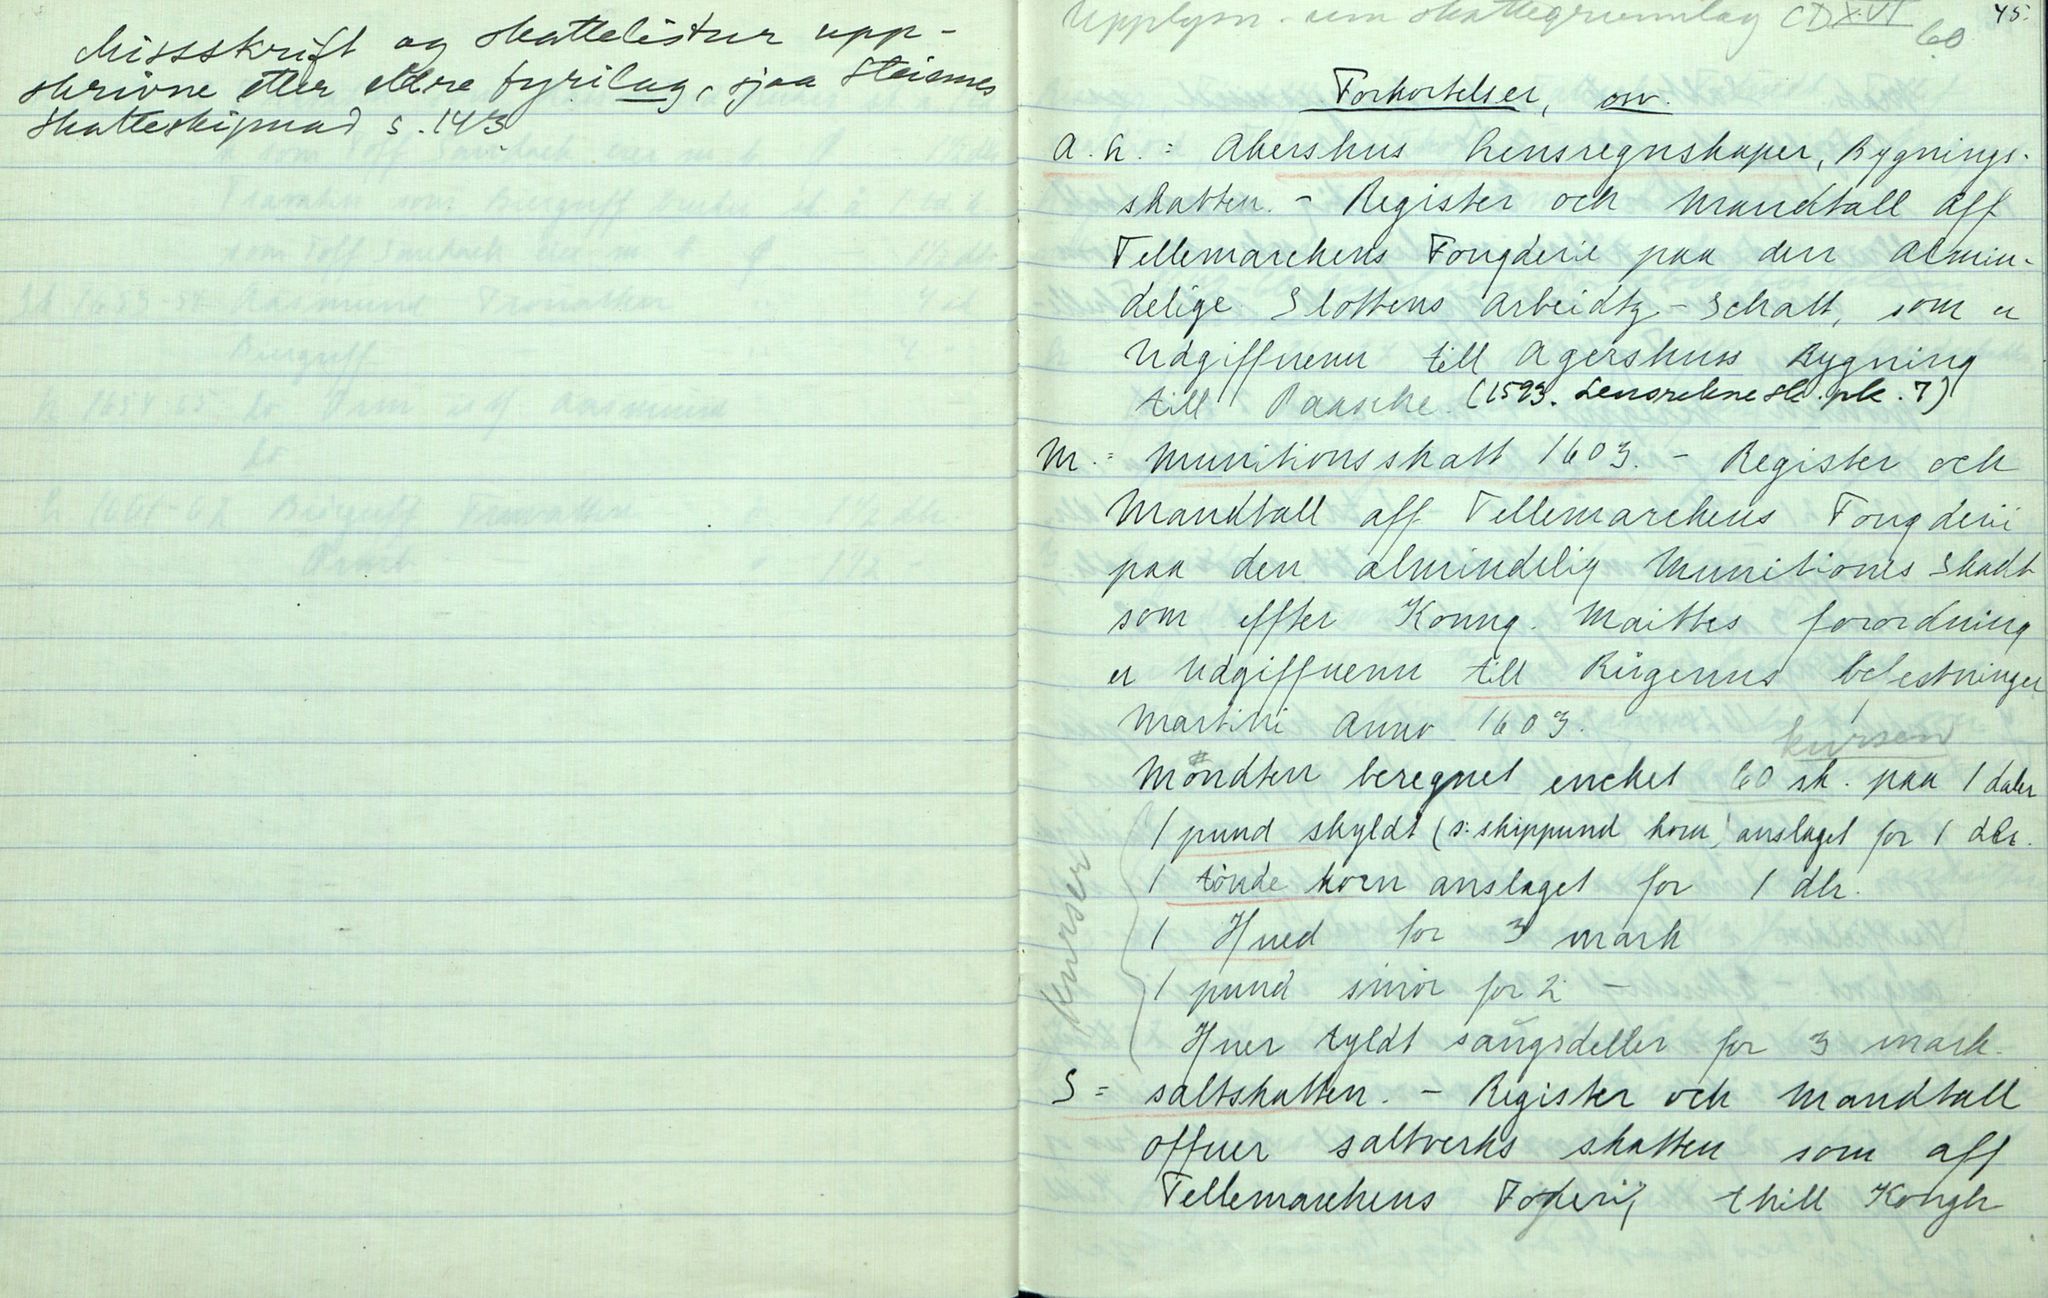 Missskrift og skattelistur upp-
skrivne etter eldre fyrilag, sjaa Steinnes
Skatteskipnad s. 143
Upplysn. um skattegrunnlag CD XVI 60
45.
Forkortelser, osv.
A. L. = Akershus Lensregnskaper, Bygnings-
skatten. - Register och Mandtall aff
Tellemarckens Fougderie paa den Almin-
delige Slottens Arbeidtz-Schatt, som er
Udgiffuenn till Agershuss Bygning
till Paaske. (1593. Lensreknesk. pk. 7)
M. = Munitionsskatt 1603. - Register och
Mandtall aff Tellemarckens Fougderii
paa den almindelig Munitiones Skadt
som effter Konng. Maittes forordning
er Udgiffuenn till Rigenns befestninger
Martini Anno 1603.
kursen
Møndten beregnet enckel 60 sk. paa 1 daler
kurser
1 pund skyldt (s: skippund korn) anslaget for 1 dlr.
1 tönde korn anslaget for 1 dlr.
1 Hued for 3 mark
1 pund smør for 2 -
Huer tyldt saugsdeller for 3 mark.
S = saltskatten. - Register och Mandtall
offuer saltverks skatten som aff
Tellemarckens Foderij thill Kongh